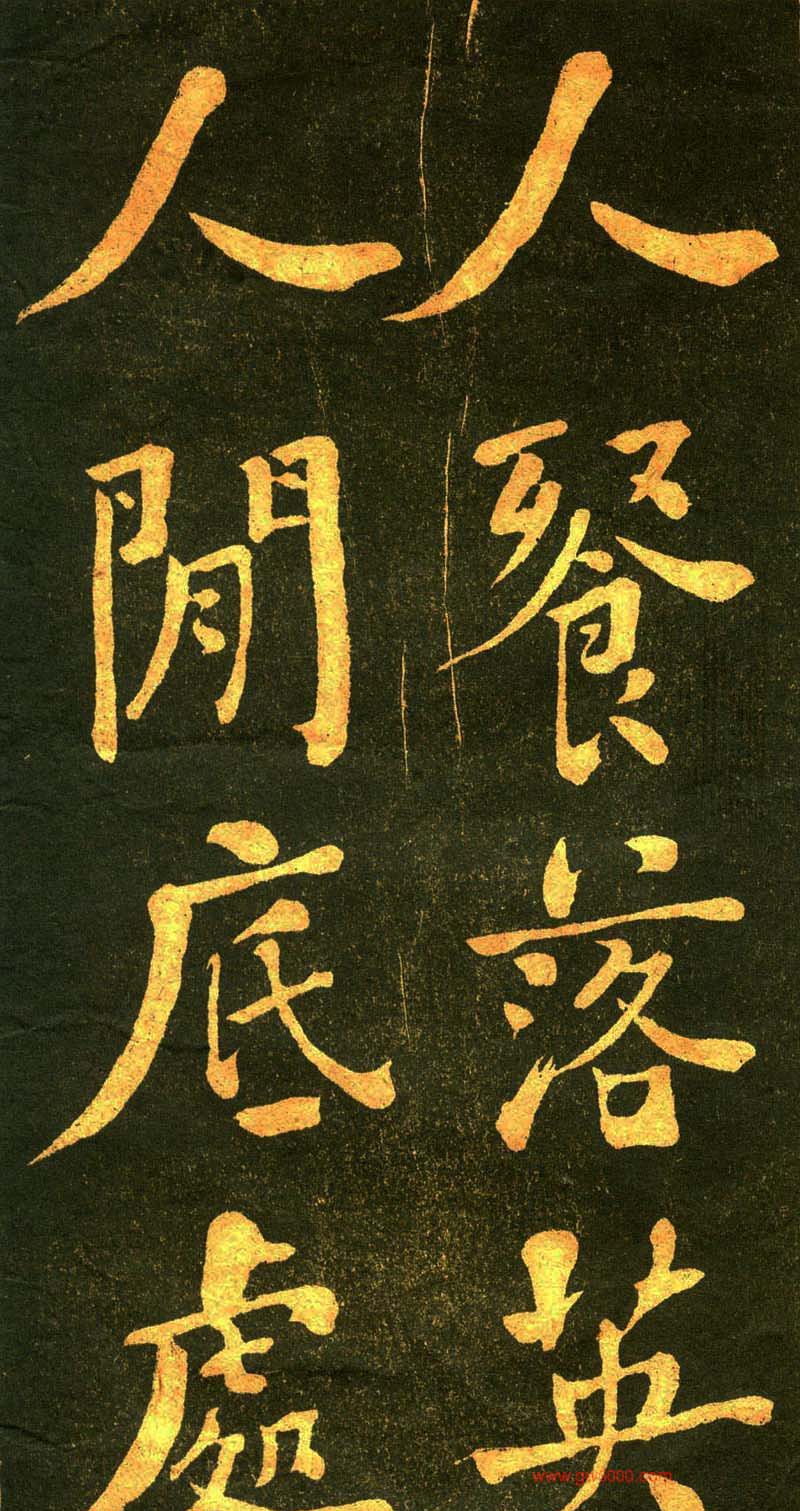 人餐落英
人閒底處
www.gsr5000.com